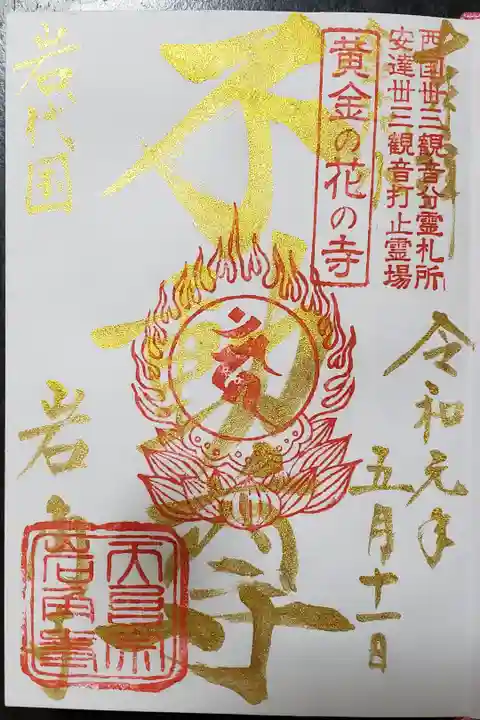 西国丗三観音分霊札所
安達丗三観音打止霊場
黄金の花の寺
奉拝
令和元年
五月十一日
不動尊
岩代国
岩角寺